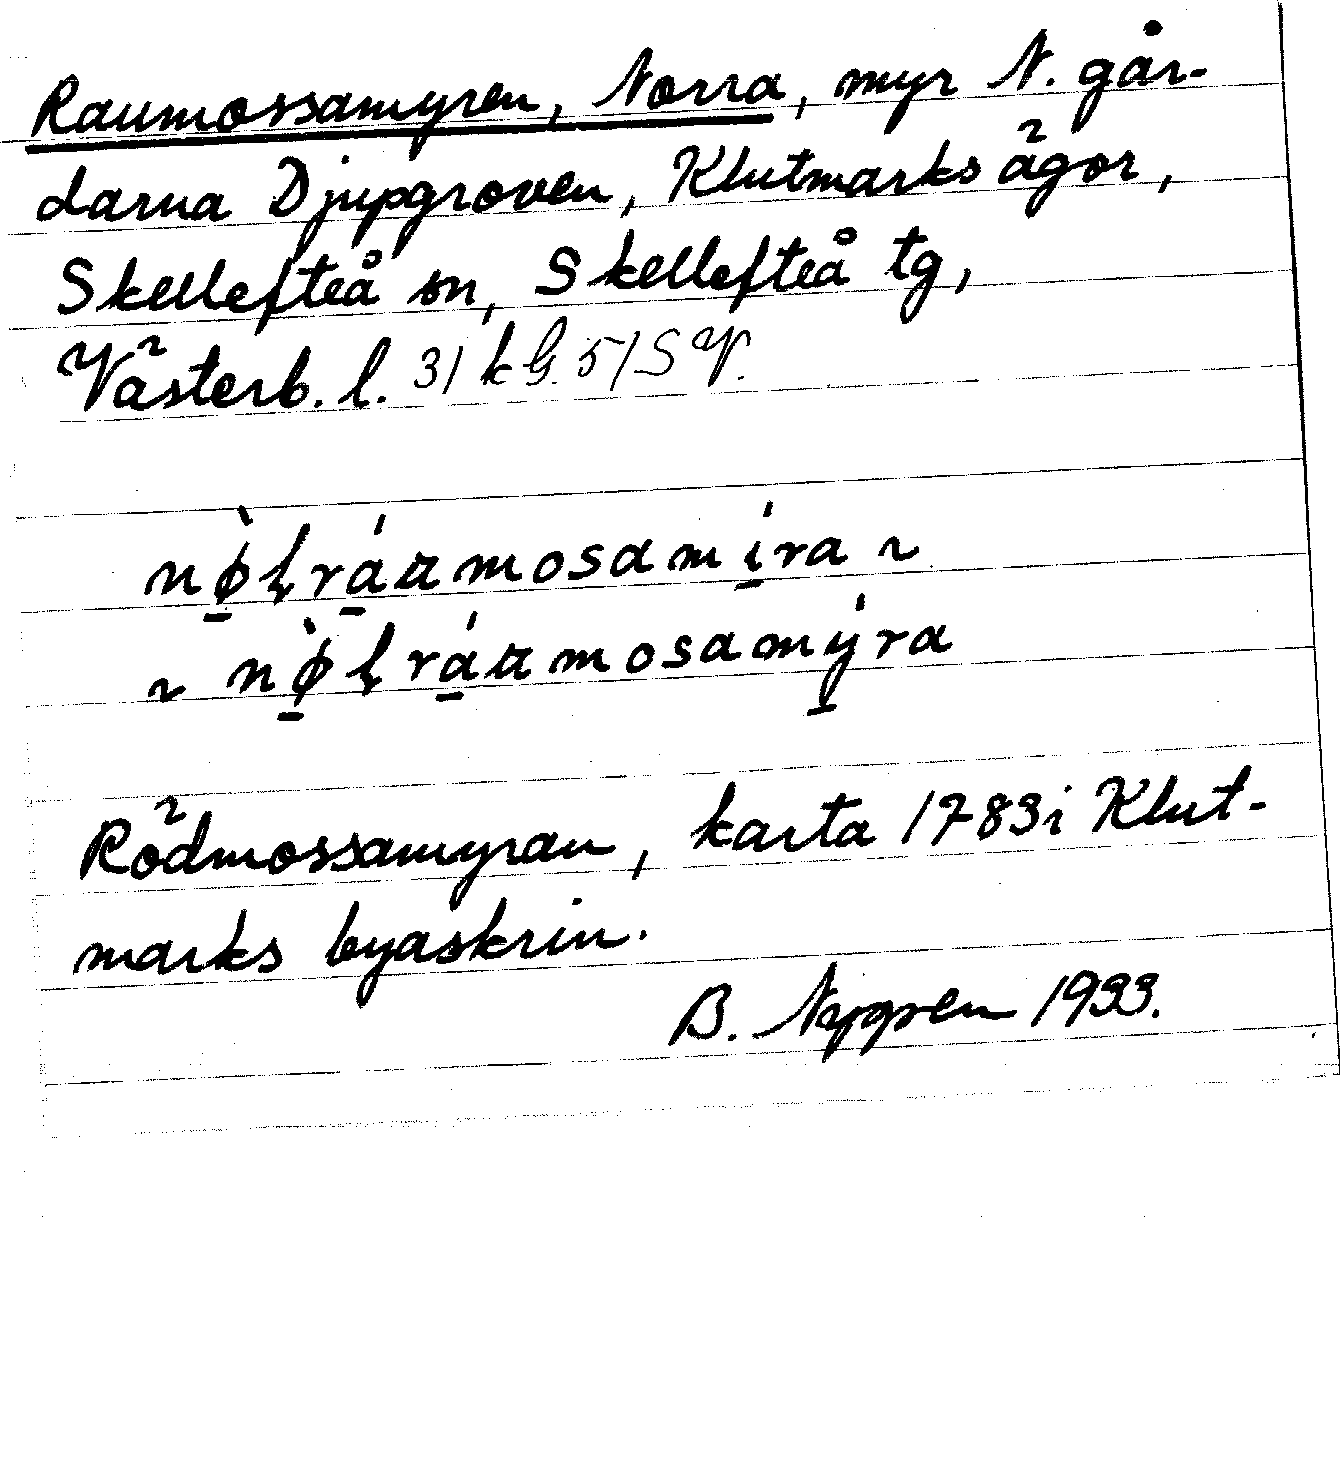 Raumossamyren, Norra, myr N. går-
darna Djupgroven, Klutmarks ägor,
Skellefteå sn, Skellefteå tg,
Västerb. l. 31 k G. 5/S V.
nø̀ɫráamosamíra ~
~ nø̀ɫráamosamýra
Rödmossamyran, karta 1783 i Klut-
marks byaskrin.
B. Nygren 1933.